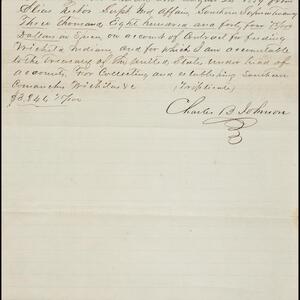 Elias Rector Supt Ind Affairs, Southern Superintendency
Three thousand Eight hundred and forty four 75/100
Dollars in Specie, on account of Contract for feeding
Wichita Indians, and for which I am accountable
to the treasury of the United States under head of
accounts, For Collecting and establishing Southern
Comanches Wichitas &c (Triplicate)
$3,844 75/100
Charles B Johnson